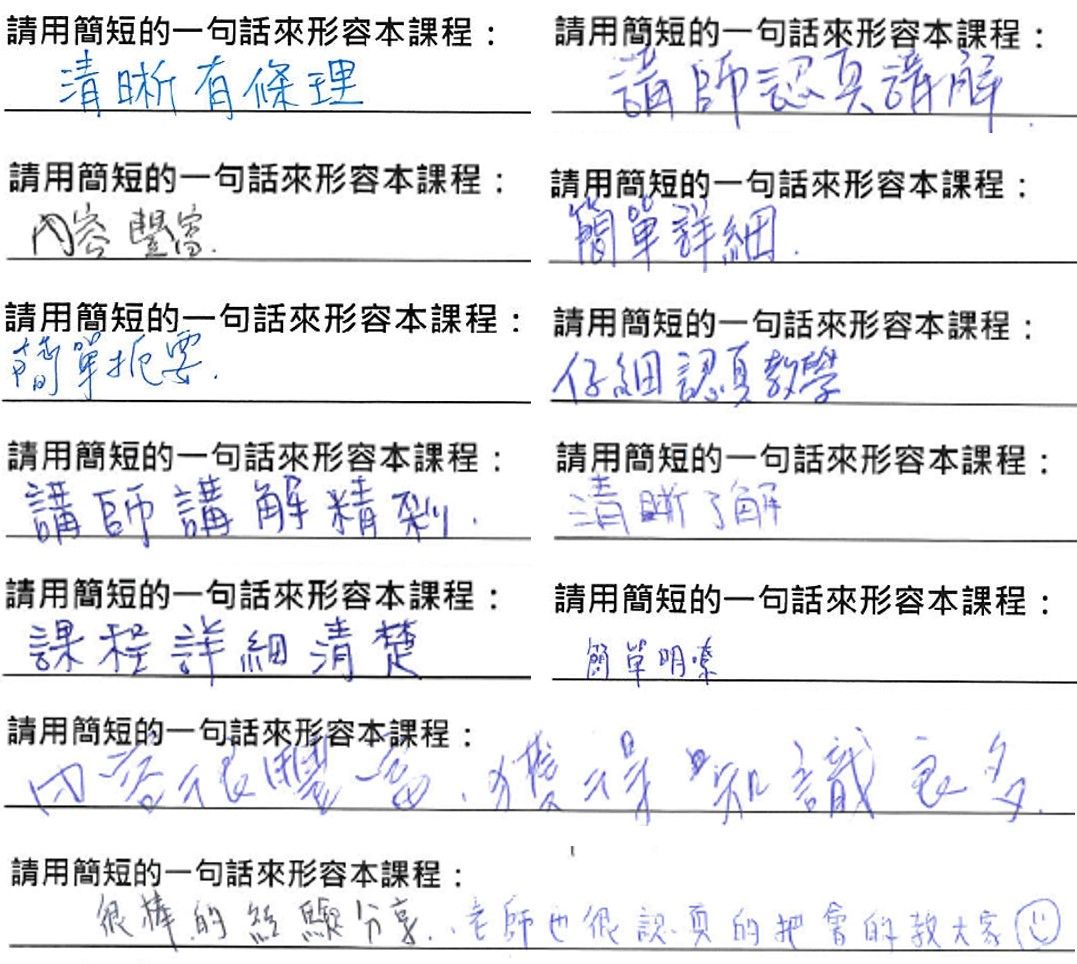 請用簡短的一句話來形容本課程：
清晰有條理
請用簡短的一句話來形容本課程：
講師認真講解
請用簡短的一句話來形容本課程：
內容豐富.
請用簡短的一句話來形容本課程：
簡單詳細.
請用簡短的一句話來形容本課程：
簡單扼要.
請用簡短的一句話來形容本課程：
仔細認真教學
請用簡短的一句話來形容本課程：
講師講解精彩.
請用簡短的一句話來形容本課程：
清晰了解
請用簡短的一句話來形容本課程：
課程詳細清楚
請用簡短的一句話來形容本課程：
簡單明瞭
請用簡短的一句話來形容本課程：
內容很豐富、獲得知識良多.
請用簡短的一句話來形容本課程：
很棒的經驗分享..老師也很認真的把會的教大家☺